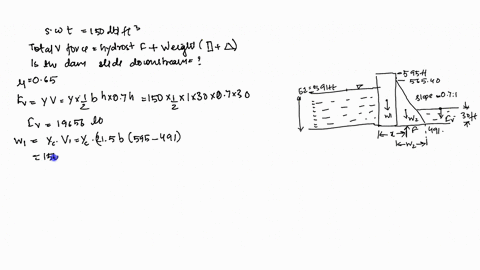 s.w.t = 150 lbf/ft³
Total V force = hydrost F + Weight (▯ + △)
Is the dam slide downstream ?
μ=0.65
Fv = γ V = γ x 1/2 b h x 0.7 h = 150 x 1/2 x 1 x 30 x 0.7 x 30
Fv = 19656 lb
W1 = γc V1 = γc . 21.5 b (595 - 491)
= 15
El = 591 ft
595 ft
565.40
slope = 0.7:1
30 ft
W1
W2
Fv
x
F
491
W2